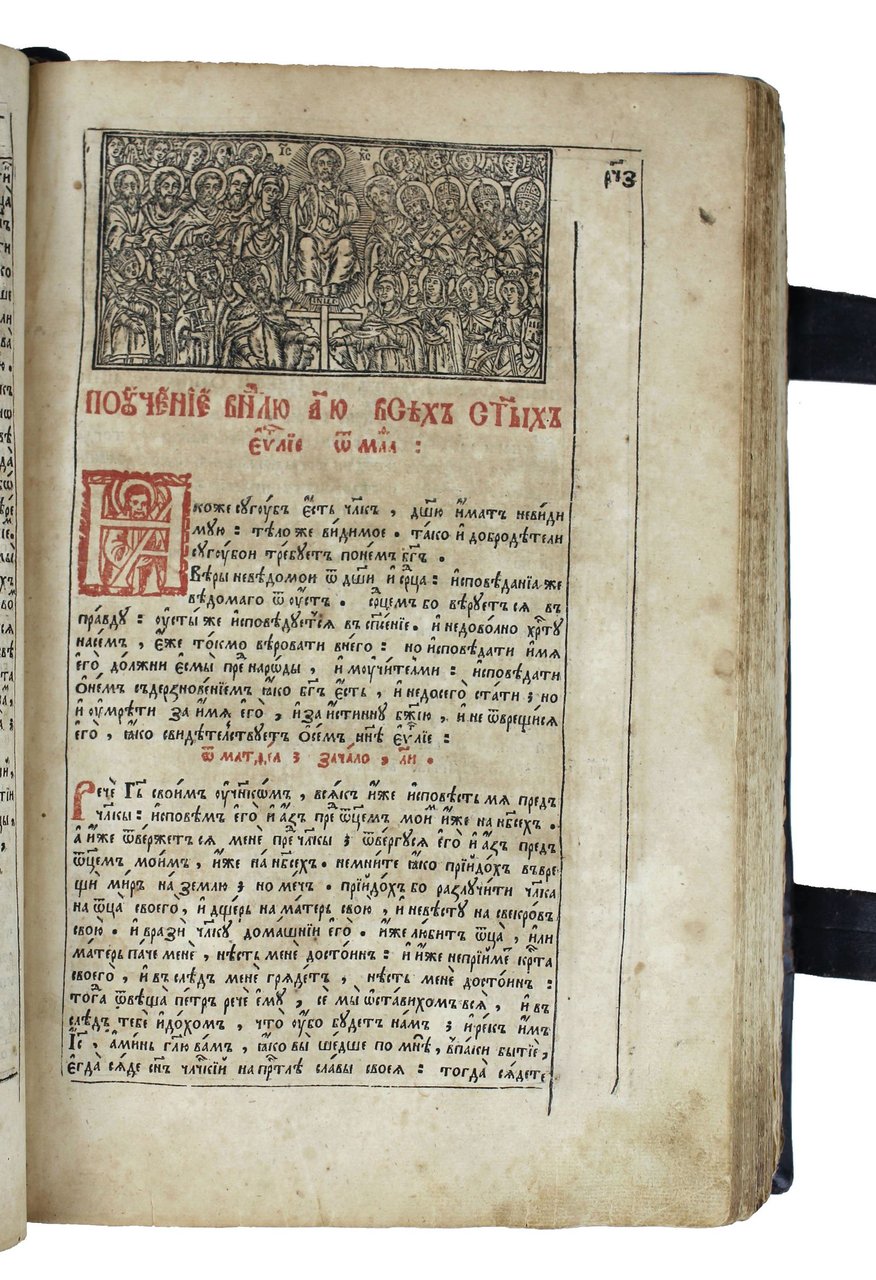 І҃С Х҃С
р҃ч҃з
ПОꙊЧЕНІЕ ВНⷣЛЮ А҃Ю ВСѢХЪ СТ҃ЫХЪ
Еѵⷢ҇ЛІЕ Ѿ МАⷴ҇Ѳ :
Ꙗкоже сугоубъ є҆́сть чл҃къ , дш҃ю и҆́мать невиди
мую : тѣло же ви́димое . та́ко и҆ добродѣ́тели
сугоубои тре́буетъ поне́мъ бг҃ъ .
Вѣры невѣ́домои ѿ дш҃и и҆ срⷣца : и҆сповѣ́данїа же
вѣ́домаго ѿ оу҆́стъ . срⷣцемъ бо вѣ́руетъся въ
пра́вду : оу҆сты́ же и҆сповѣ́дуетъся въ сп҃се́нїе . и҆ недово́лно хрⷭ҇ту
на́семъ , є҆́же то́кмо вѣ́ровати внего̀ : но и҆сповѣ́дати и҆́мя
є҆го̀ до́лжни є҆смы̀ преⷣ наро́ды , и҆ мꙋчи́телми : и҆сповѣ́дати
ѻ҆не́мъ съдерзнове́нїемъ ꙗ҆́ко бг҃ъ є҆́сть , и҆ недосего̀ ста́ти ; но
и҆ оу҆мре́ти за и҆́мя є҆го̀ , и҆ за и҆́стинну бж҃їю , и҆ не ѿврещи́ся
є҆го̀ , ꙗ҆́ко свидѣ́телствуетъ ѻ҆се́мъ нн҃ѣ є҆ѵⷢ҇лїе :
ѿ матѳе́а ; зача́ло , л҃и .
Речѐ гⷭ҇ь свои́мъ оу҆чн҃ко́мъ , вся́къ и҆́же и҆сповѣ́сть мя предъ
чл҃кы : и҆сповѣ́мъ є҆го̀ и҆ а҆́зъ преⷣ ѿц҃емъ мои҆́мъ и҆́же на нб҃сехъ .
а҆ и҆́же ѿве́ржетъ ся мене преⷣ чл҃кы ; ѿве́ргуся є҆го̀ и҆ а҆́зъ предъ
ѿц҃емъ мои́мъ , и҆́же на нб҃сехъ . немни́те ꙗ҆́ко прїидо́хъ въвре
щи ми́ръ на́ землю ; но ме́чъ . прїидо́хъ бо разлучи́ти чл҃ка
на ѿц҃а̀ своего̀ , и҆ дще́рь на ма́терь свою , и҆ невѣ́сту на свекровъ
свою . и҆ вразѝ чл҃ку дома́шнїи є҆го̀ . и҆́же лю́битъ ѿц҃а̀ , и҆́ли
ма́терь па́че менѐ , нѣ́сть менѐ досто́инъ : и҆ и҆́же непрїи́меⷮ крⷭ҇та
своего̀ , и҆ въ слѣ́дъ менѐ гряде́тъ , нѣ́сть менѐ досто́инъ :
тогⷣа ѿвѣща̀ пе́тръ речѐ є҆му̀ , сѐ мы̀ ѡ҆ста́вихомъ вся̀ , и҆ въ
слѣ́дъ тебѐ и҆до́хомъ , что̀ оу҆́бо бу́детъ на́мъ ; и҆ ре́къ и҆́мъ
І҆с҃ , а҆ми́нь гл҃ю ва́мъ , ꙗ҆́ко вы̀ ше́дше по мнѣ̀ , въпа́ки бытїѐ ,
є҆гда̀ ся́де сн҃ъ чл҃чкїй на прⷭ҇тлѣ сла́вы своея̀ : тогда̀ ся́дете